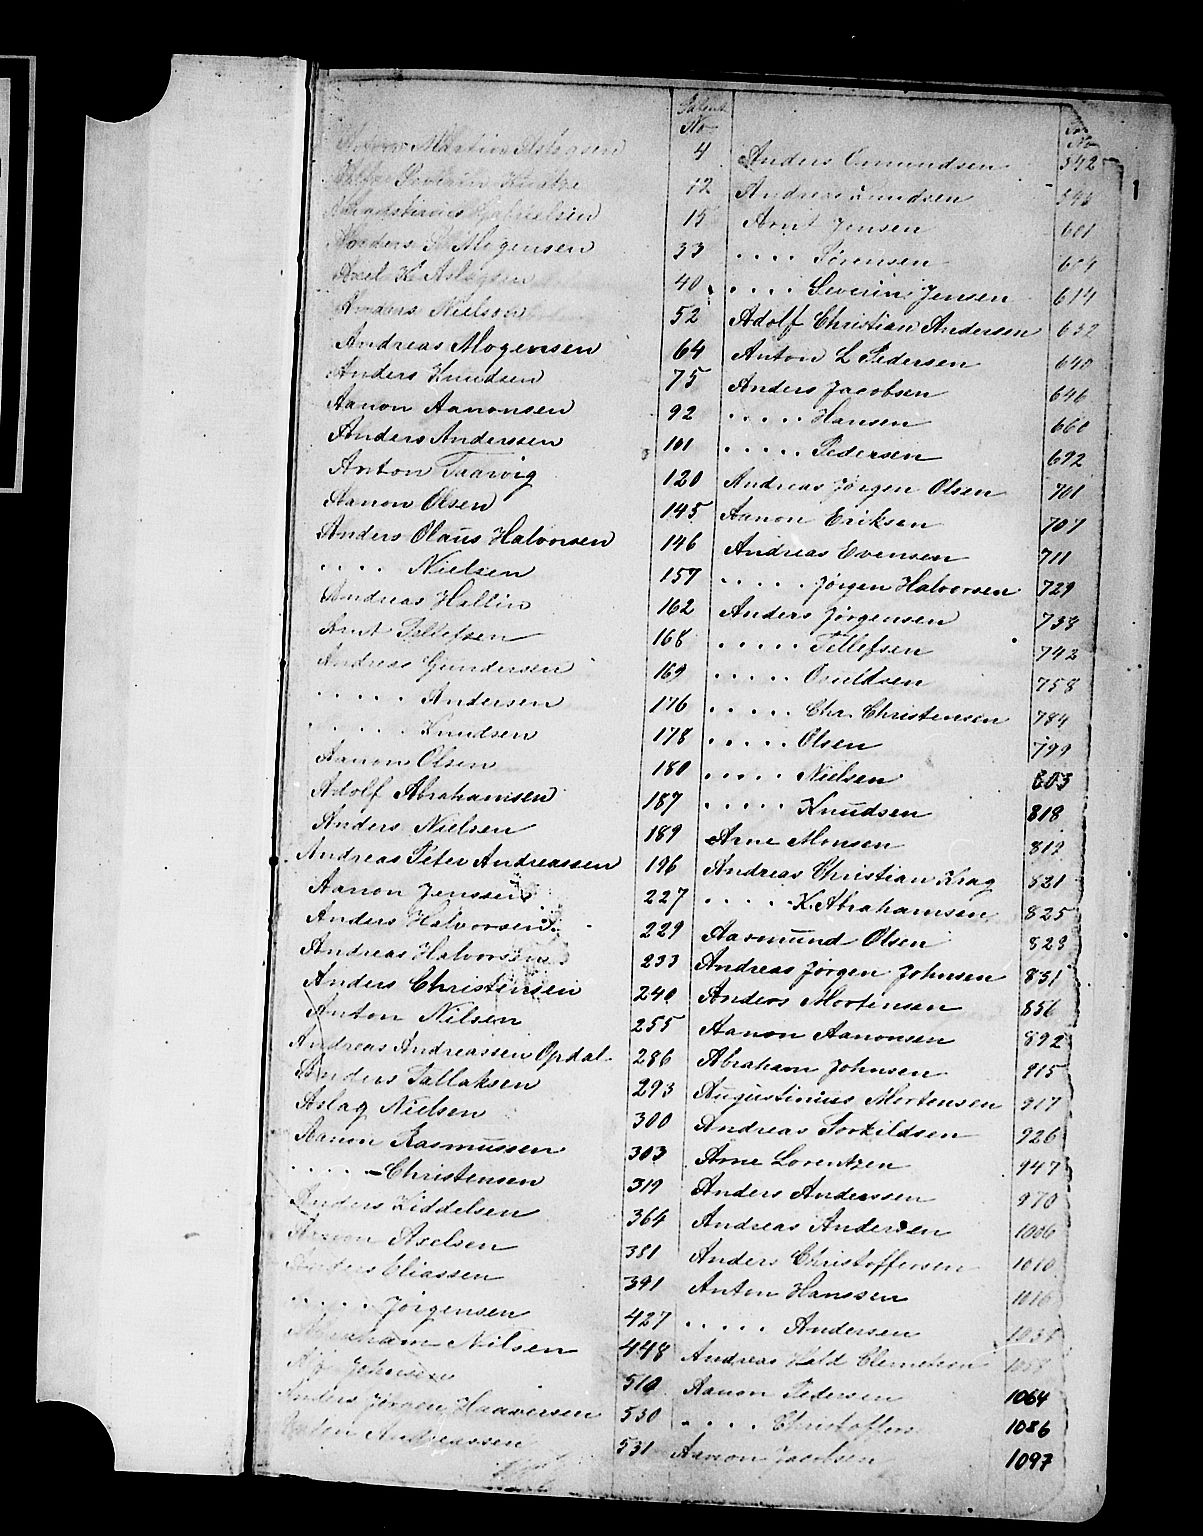 Patent No
Martin Aslagsen 4
Severin Knudsen 12
15
Anders Mogensen 33
Axel K Aslagsen 40
Anders Nielsen 52
Andreas Mogensen 64
Anders Knudsen 75
Aanon Aanonsen 92
Anders Anderssen 101
Anton Taarvig 120
Aanon Olsen 145
Anders Olaus Halvorsen 146
.... Nielsen 157
Andreas Hallin 162
Arnt Tellefsen 168
Andreas Gundersen 169
..... Andersen 176
..... Knudsen 178
Aanon Olsen 180
Adolf Abrahamsen 187
Anders Nielsen 189
Andreas Peter Andreassen 196
Aanon Jenssen 227
Anders Halvorsen 229
Andreas Halvorsen 233
Anders Christensen 240
Anton Nilsen 255
Andreas Andreassen Opdal 286
Anders Tallaksen 293
Aslag Nielsen 300
Aanon Rasmussen 303
..... Christensen 319
Anders Kiddelsen 364
Aanon Axelsen 381
Anders Eliassen 391
..... Jörgensen 427
Abraham Nilsen 448
Johnsen 510
Anders Jörgen Haaversen 530
Andreassen 531
No
Anders Omundsen 542
Andreas Lundsen
Arnt Jensen 601
.... Sörensen 604
.... Severin Jensen 614
Adolf Christian Andersen 632
Anton L Pedersen 640
Anders Jacobsen 646
..... Hansen 660
..... Pedersen 692
Andreas Jörgen Olsen 701
Aanon Eriksen 707
Andreas Evensen 711
..... Jörgen Halvorsen 729
Anders Jörgensen 738
..... Tellefsen 742
..... 758
..... Chr. Christensen 784
..... Olsen 799
..... Nielsen 803
..... Knudsen 818
Arne Monsen 819
Andreas Christian Krag 821
..... K. Abrahamsen 825
Aasmund Olsen 828
Andreas Jörgen Johnsen 851
Anders Mortensen 856
Aanon Aanonsen 892
Abraham Johnsen 915
Augustinius Mortensen 917
Andreas Torkildsen 926
Arne Lorentzen 947
Anders Anderssen 970
Andreas Andersen 1006
Anders Christoffersen 1010
Anton Hanssen 1016
..... Andersen 1038
Andreas Held Clemetsen 1058
Aanon Pedersen 1064
.... Christoffers 1086
Aanon Jacobsen 1097